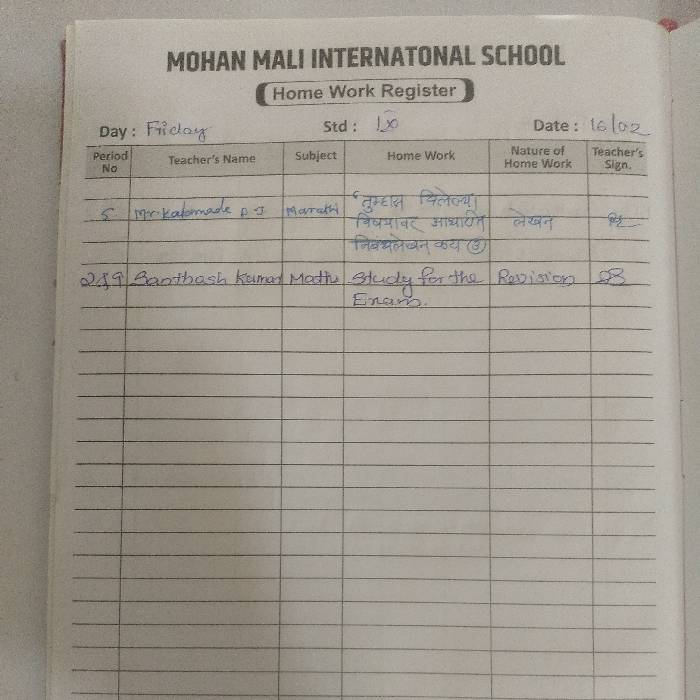 MOHAN MALI INTERNATONAL SCHOOL
Home Work Register
Day : Friday Std : IX Date : 16/02
Period No Teacher's Name Subject Home Work Nature of Home Work Teacher's Sign.
5 Mr. Kalamade D J Marathi तुम्हास दिलेल्या लेखन
विषयावर आधारित
निबंधलेखन करा
2&9 Santhosh Kumar Maths Study for the Revision SB
Exam.